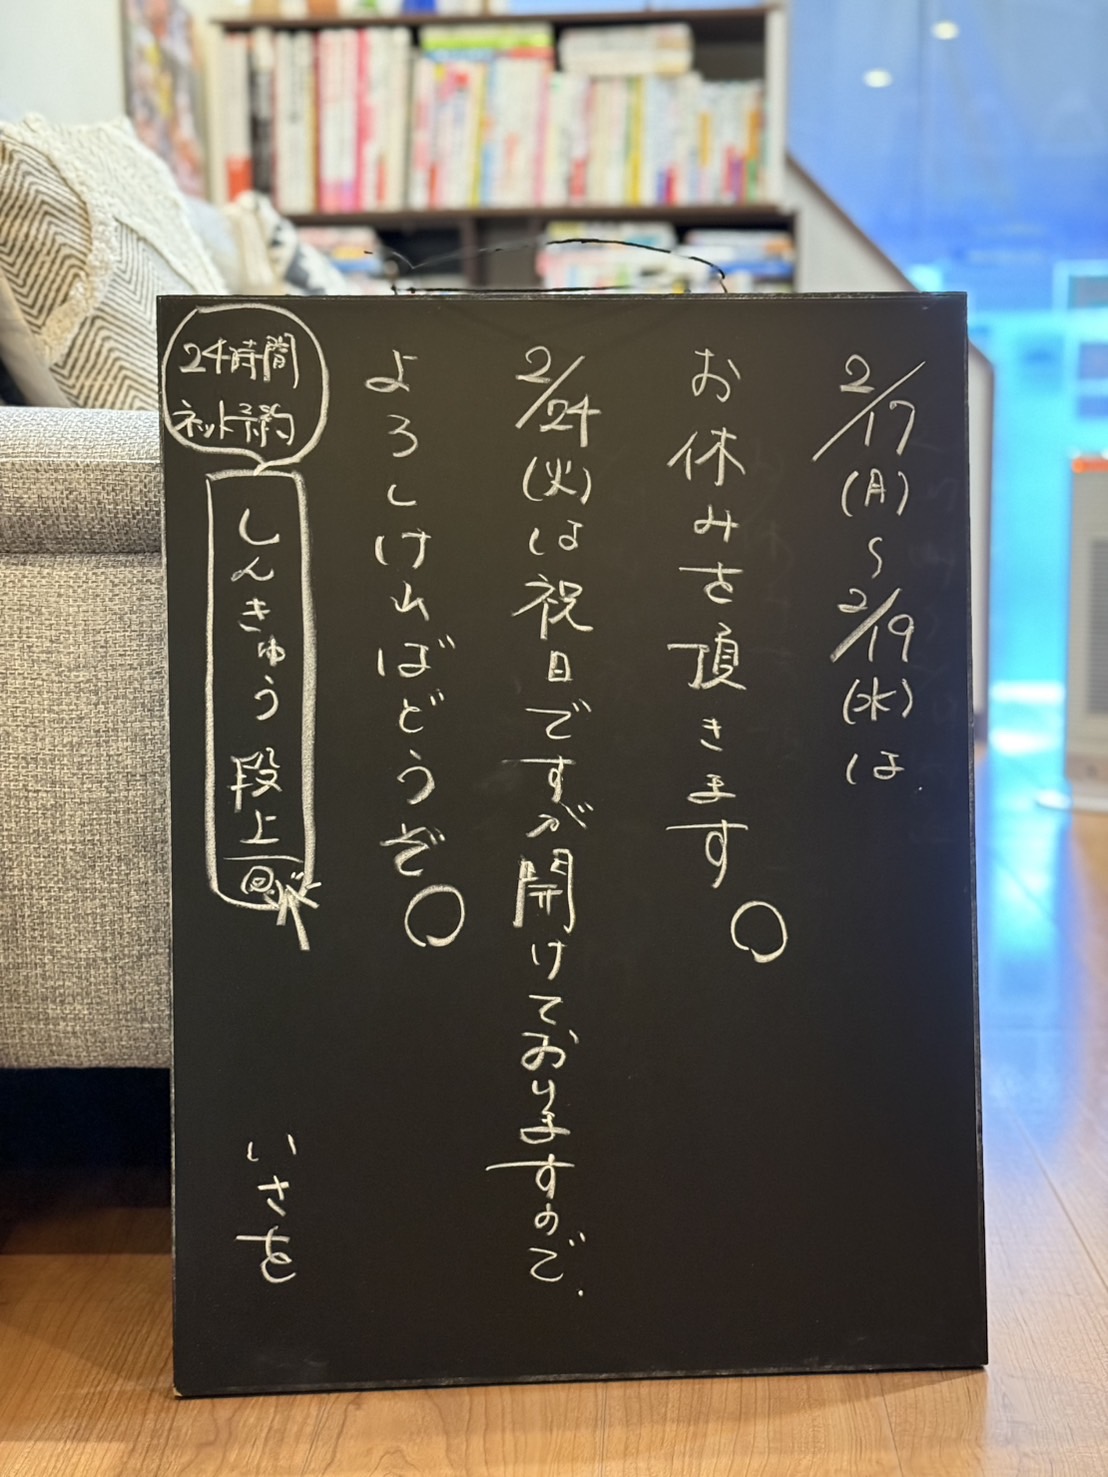 2/17(月)〜2/19(水)は
お休みを頂きます。
2/24(火)は祝日ですが開けておりますので
よろしければどうぞ。
24時間
ネット予約
しんきゅう 段上
いさを